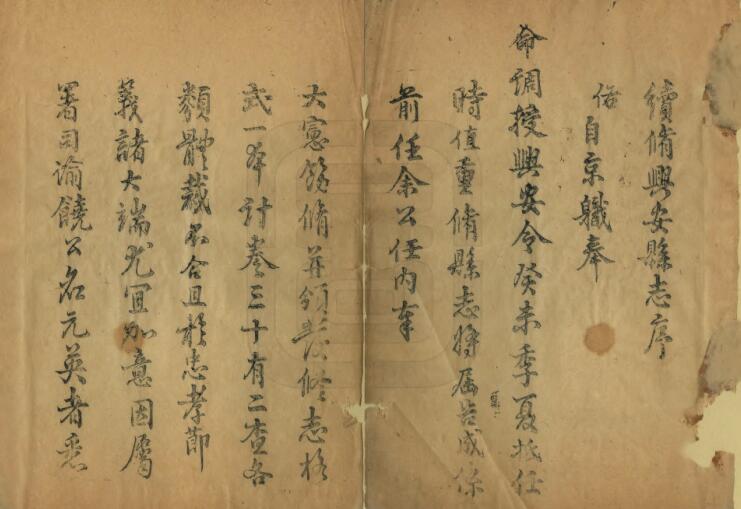 續脩興安縣志序
偹自京職奉
命調授興安令癸未季夏抵任
時值重脩縣志將届告成係
前任余公任內奉
大憲飭脩并領發條志格
式一本計卷三十有二查各
類體裁不合且於忠孝節
義諸大端尤宜加意因屬
署司諭饒公名元英者悉